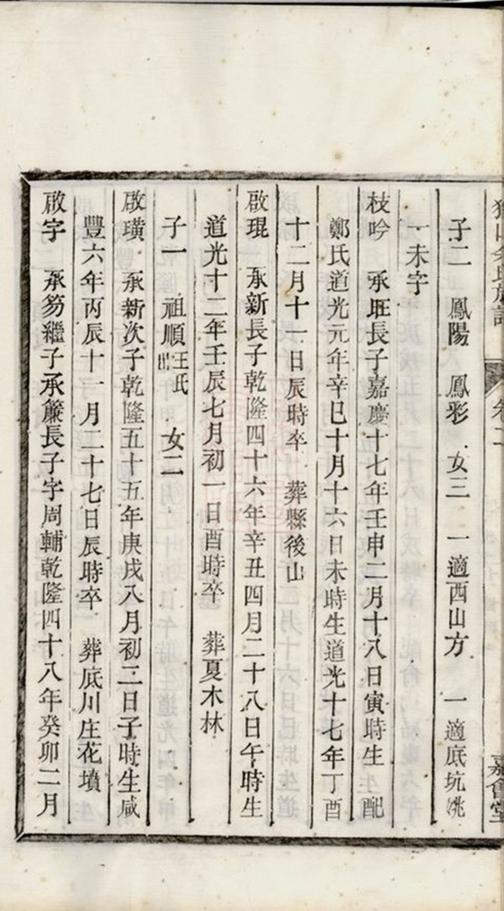 氏族譜 卷二 嘉會堂
子二 鳳陽 鳳彩 女三 一適西山方 一適底坑姚
一未字
枝吟 承旺長子嘉慶十七年壬申二月十八日寅時生 配
鄭氏道光元年辛巳十月十六日未時生道光十七年丁酉
十二月十一日辰時卒 葬縣後山
啟琨 承新長子乾隆四十六年辛丑四月二十八日午時生
道光十二年壬辰七月初一日酉時卒 葬夏木林
子一 祖順汪氏出 女二
啟璜 承新次子乾隆五十五年庚戌八月初二日子時生咸
豐六年丙辰十一月二十七日辰時卒 葬底川庄花墳
啟字 承芴繼子承簾長子字周輔乾隆四十八年癸卯二月